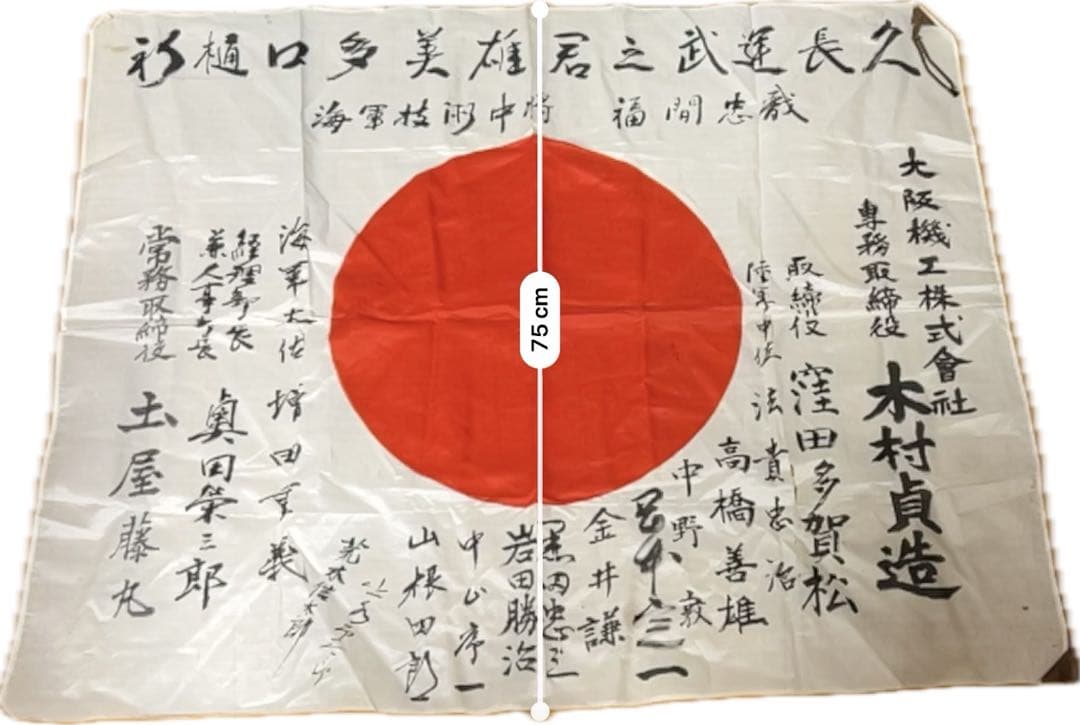 祈樋口多美雄君之武運長久
海軍技術中将 福間忠哉
大阪機工株式會社
専務取締役 木村貞造
取締役 窪田多賀松
陸軍中佐 法貴忠治
高橋善雄
中野敦
金井謙
岩田勝治
中山序一
山根田郎
海軍大佐 増田重義
経理部長
兼人事部長 奥田榮三郎
常務取締役 土屋藤丸
75 cm